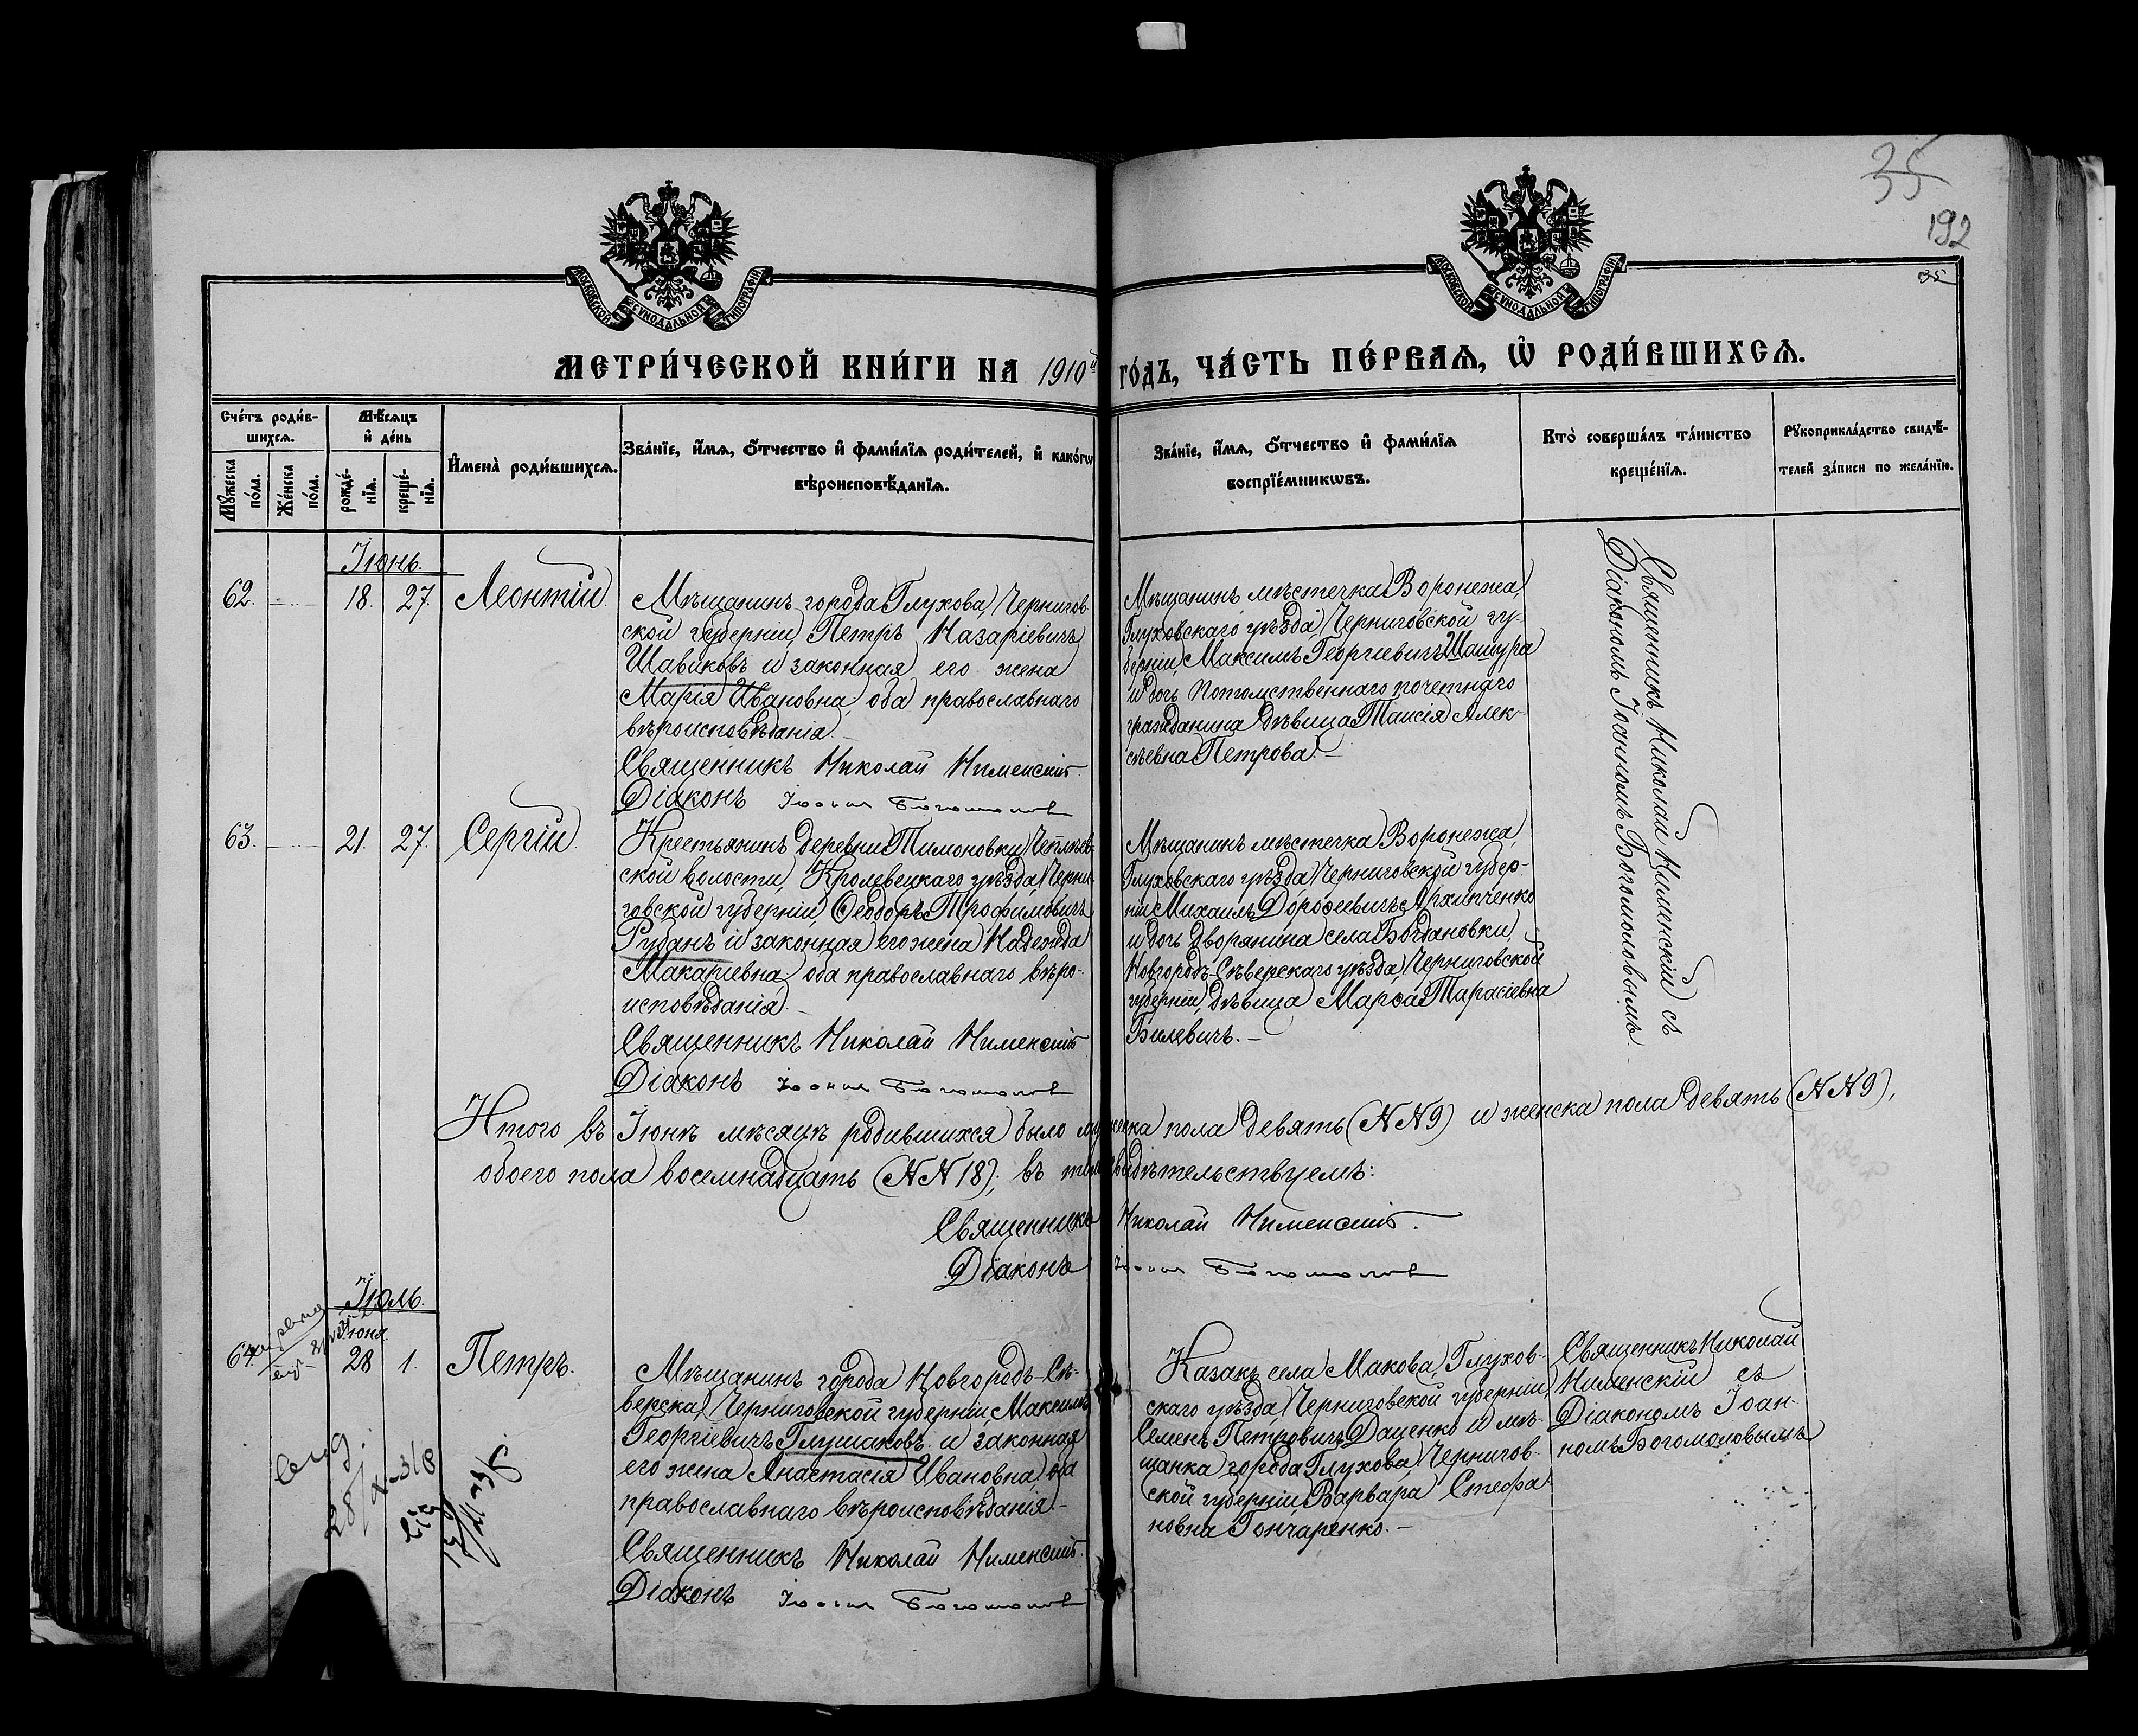 35
192
35
МОСКОВСКОЙ СѴНОДАЛЬНОЙ ТИПОГРАФІИ
МОСКОВСКОЙ СѴНОДАЛЬНОЙ ТИПОГРАФІИ
МЕТРИ́ЧЕСКОЙ КНИ́ГИ НА 1910й ГО́ДЪ, ЧА́СТЬ ПЕ́РВАѦ, Ѡ҆ РОДИ́ВШИХСѦ.
Сче́тъ роди́в-
шихсѧ.
Мꙋ́жеска
по́ла.
Же́нска
по́ла.
Мѣ́сѧцъ
и҆ де́нь
рожде́-
нїѧ.
креще́-
нїѧ.
И҆мена̀ роди́вшихсѧ.
Зва́нїе, и҆́мѧ, ѻ҆́тчество и҆ фами́лїѧ роди́телей, и҆ како́гѡ
вѣроисповѣ́данїѧ.
Зва́нїе, и҆́мѧ, ѻ҆́тчество и҆ фами́лїѧ
воспрїе́мникѡвъ.
Кто̀ соверша́лъ та́инство
креще́нїѧ.
Рꙋкоприкла́дство свидѣ́-
телей за́писи по жела́нїю.
Іюнь.
62. 18. 27. Леонтій.
Мѣщанинъ города Глухова, Чернигов-
ской губерніи, Петръ Назаріевичъ
Шавиковъ и законная его жена
Марія Ивановна, оба православнаго
вѣроисповѣданія.
Священникъ Николай Нименскій.
Діаконъ Іоаннъ Богомоловъ
Мѣщанинъ мѣстечка Воронежа,
Глуховскаго уѣзда, Черниговской гу-
берніи, Максимъ Георгіевичъ Шашура
и дочь потомственнаго почетнаго
гражданина дѣвица Таисія Алек-
сѣевна Петрова.
Священникъ Николай Нименскій съ
Діакономъ Іоанномъ Богомоловымъ.
63. 21. 27. Сергій.
Крестьянинъ деревни Тимоновки, Чеплѣев-
ской волости, Кролевецкаго уѣзда, Черни-
говской губерніи, Ѳеодоръ Трофимовичъ
Рубанъ и законная его жена Надежда
Макаріевна, оба православнаго вѣро-
исповѣданія.
Священникъ Николай Нименскій
Діаконъ Іоаннъ Богомоловъ
Мѣщанинъ мѣстечка Воронежа,
Глуховскаго уѣзда, Черниговской губер-
ніи Михаилъ Дороѳеевичъ Архипченко
и дочь дворянина села Богдановки,
Новгородъ-Сѣверскаго уѣзда, Черниговской
губерніи, дѣвица Марѳа Тарасіевна
Билевичъ.
Итого въ Іюнѣ мѣсяцѣ родившихся было мужеска пола девять (NN 9) и женска пола девять (NN 9),
обоего пола восемнадцать (NN 18); въ томъ свидѣтельствуемъ:
Священникъ Николай Нименскій.
Діаконъ Іоаннъ Богомоловъ
Іюль.
Іюня
64. 28 1. Петръ.
Мѣщанинъ города Новгородъ-Сѣ-
верска, Черниговской губерніи, Максимъ
Георгіевичъ Глушаковъ и законная
его жена Анастасія Ивановна, оба
православнаго вѣроисповѣданія.
Священникъ Николай Нименскій.
Діаконъ Іоаннъ Богомоловъ
Казакъ села Макова, Глухов-
скаго уѣзда, Черниговской губерніи,
Семенъ Петровичъ Даценко и мѣ-
щанка города Глухова, Чернигов-
ской губерніи, Варвара Стефа-
новна Гончаренко.
Священникъ Николай
Нименскій съ
Діакономъ Іоан-
номъ Богомоловымъ